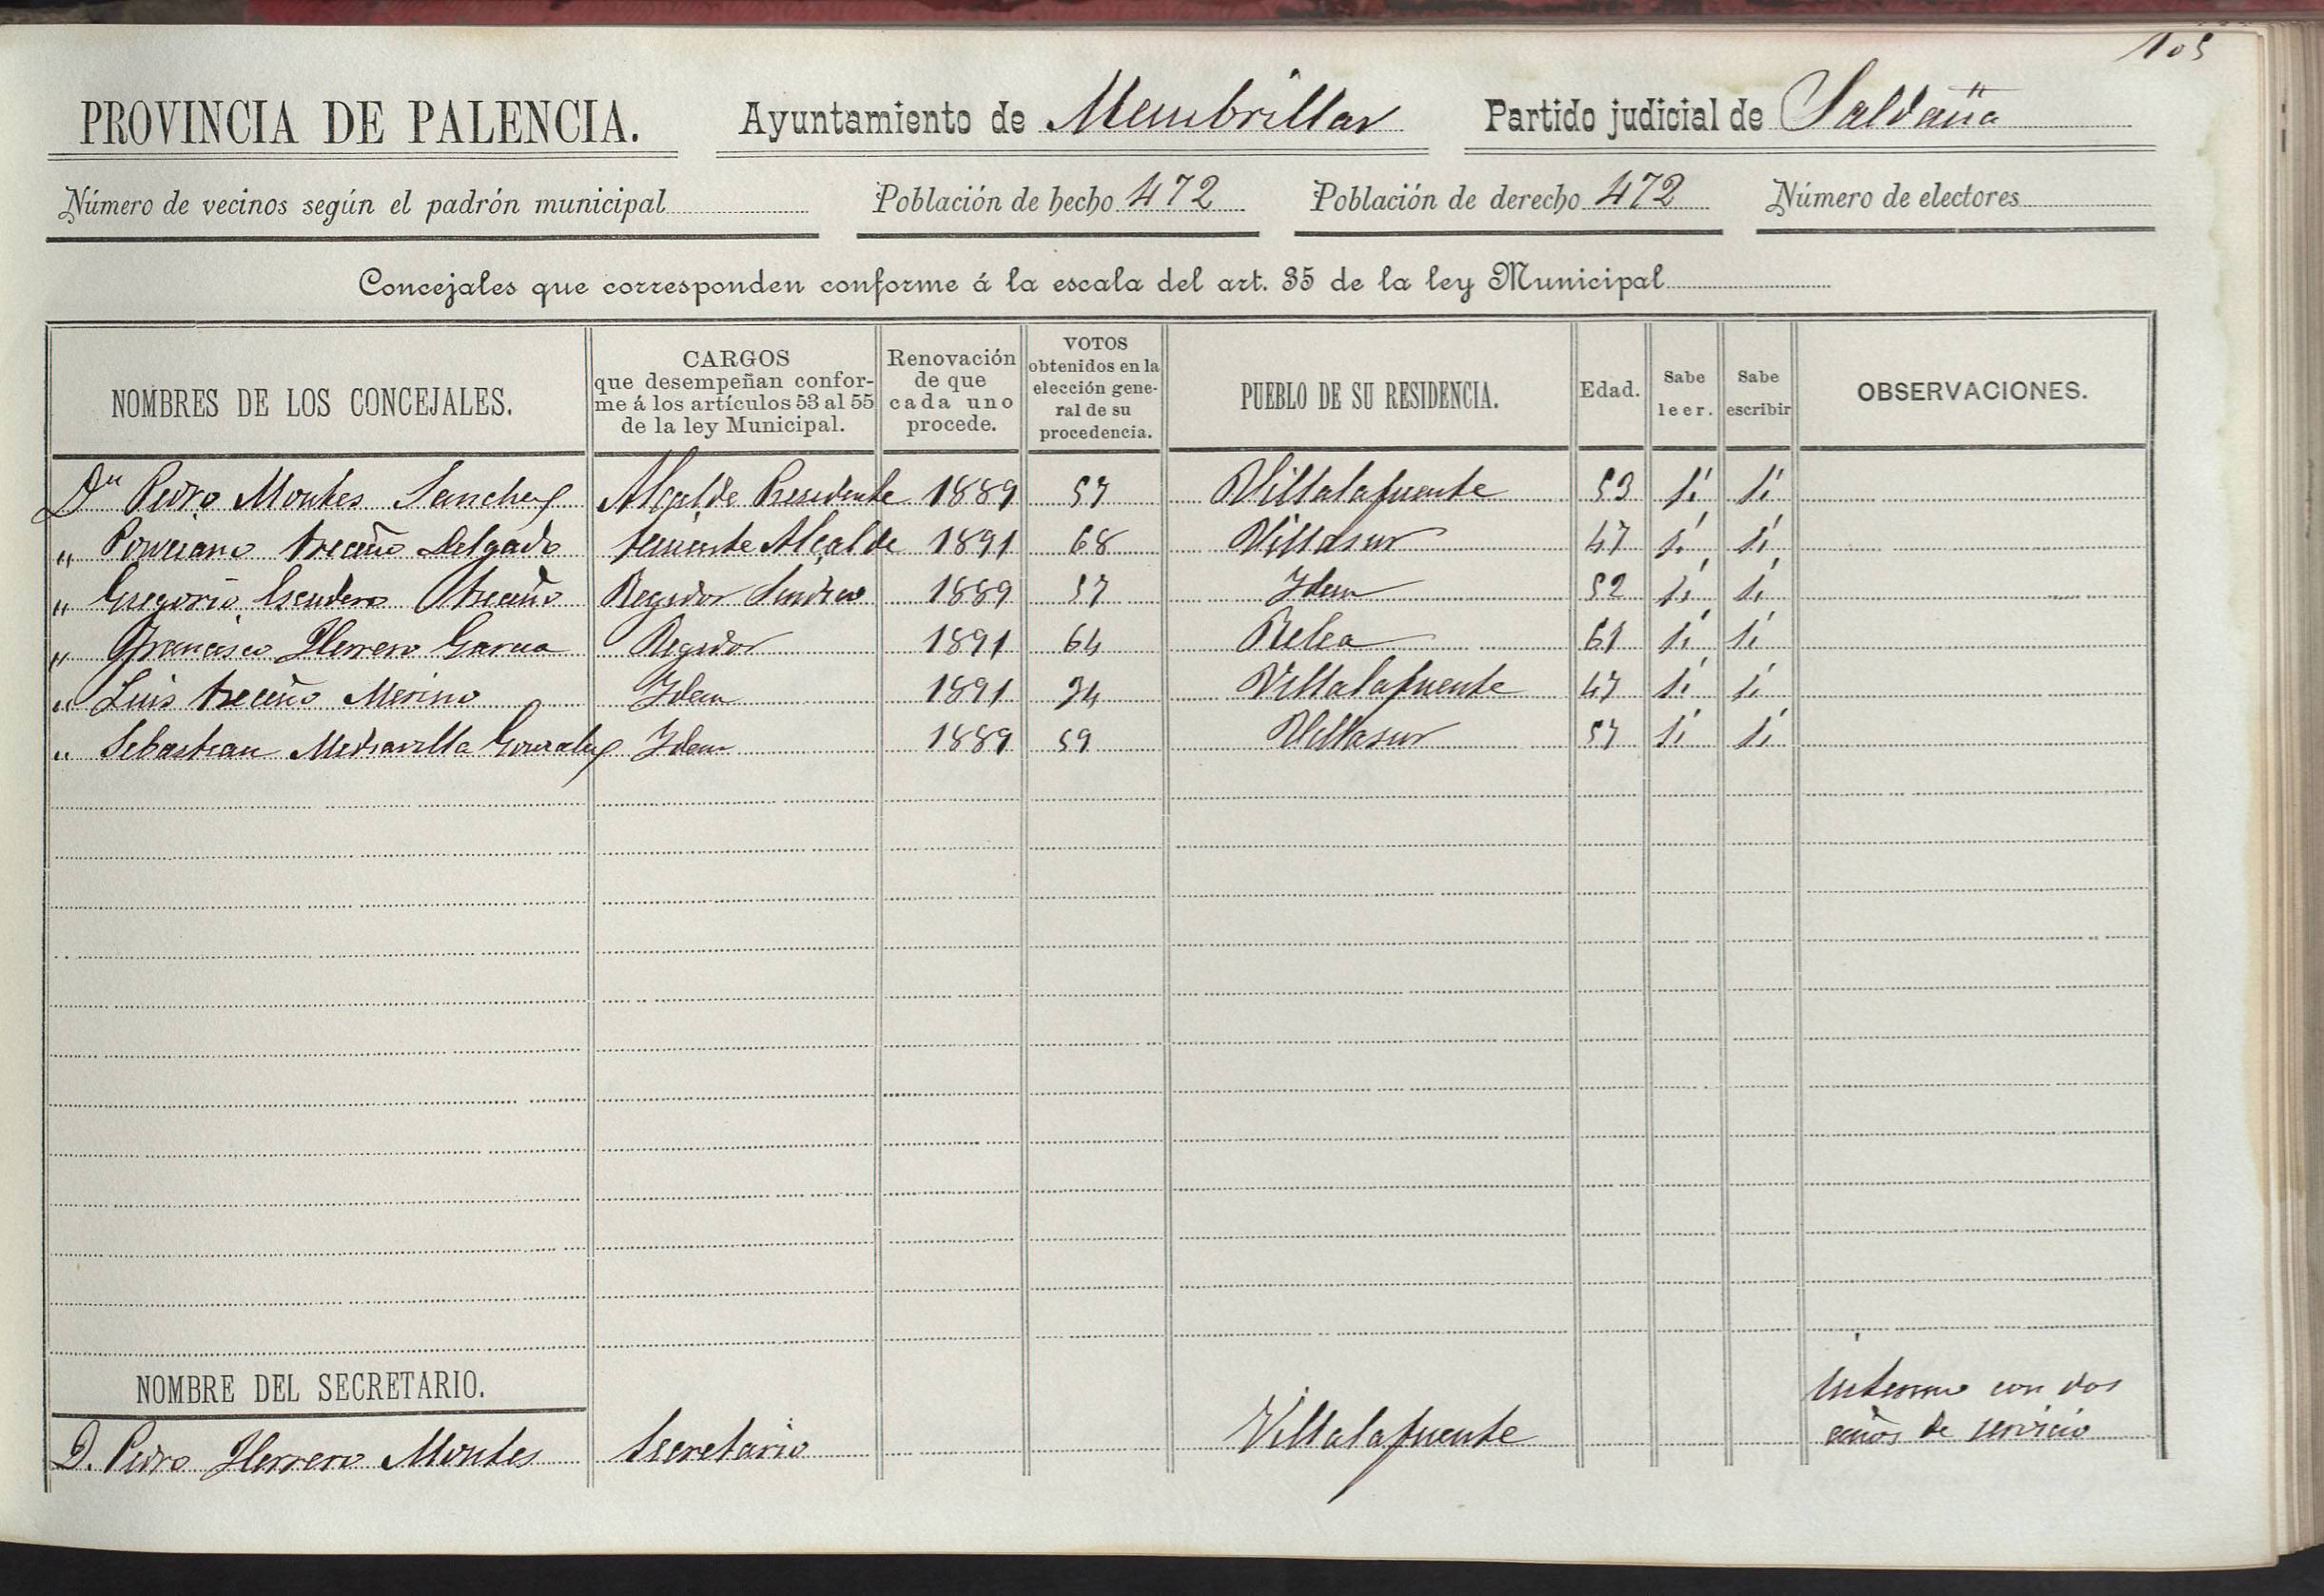 105
PROVINCIA DE PALENCIA. Ayuntamiento de Membrillar Partido judicial de Saldaña
Número de vecinos según el padrón municipal Población de hecho 472 Población de derecho 472 Número de electores
Concejales que corresponden conforme á la escala del art. 35 de la ley Municipal
NOMBRES DE LOS CONCEJALES. CARGOS que desempeñan conforme á los artículos 53 al 55 de la ley Municipal. Renovación de que cada uno procede. VOTOS obtenidos en la elección general de su procedencia. PUEBLO DE SU RESIDENCIA. Edad. Sabe leer. Sabe escribir OBSERVACIONES.
Dn Pedro Montes Sanchez Alcalde Presidente 1889 57 Villalafuente 53 si si
" Treceño Delgado teniente Alcalde 1891 68 Villasur 47 si si
" Gregorio Escudero Treceño Regidor Sindico 1889 57 Idem 52 si si
" Francisco Herrero Garcia Regidor 1891 64 Relea 61 si si
" Luis treceño Merino Idem 1891 34 Villalafuente 47 si si
" Sebastian Mediavilla Gonzalez Idem 1889 59 Villasur 57 si si
NOMBRE DEL SECRETARIO.
D. Pedro Herrero Montes Secretario Villalafuente Interino con dos
años de servicio